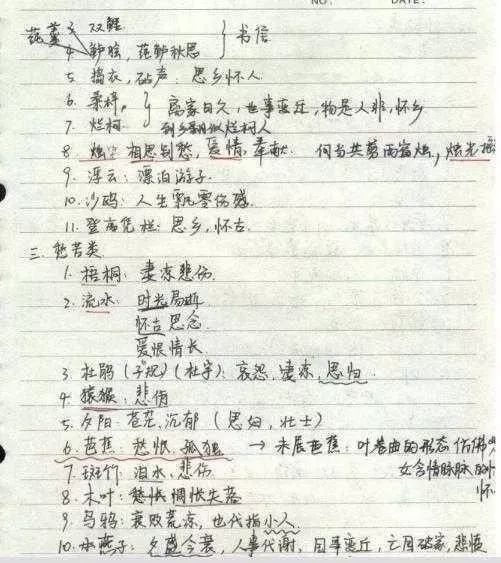 NO. DATE.
3. 双鲤 } 书信
莼羹 4. 鲈脍, 莼鲈秋思
5. 捣衣, 砧声: 思乡怀人
6. 桑梓, } 离家日久, 世事变迁, 物是人非, 怀乡
7. 烂柯: 到乡翻似烂柯人
8. 烛: 相思别愁, 爱情, 奉献. 何当共剪西窗烛, 烛光
9. 浮云: 漂泊游子.
10. 沙鸥: 人生飘零伤感.
11. 登高凭栏: 思乡, 怀古.
三. 愁苦类
1. 梧桐: 凄凉悲伤.
2. 流水: 时光易逝
怀古思念.
爱恨情长
3. 杜鹃 (子规) (杜宇): 哀怨, 凄凉, 思归.
4. 猿猴: 悲伤
5. 夕阳: 苍茫, 沉郁 (思妇, 壮士)
6. 芭蕉: 愁恨. 孤独 → 未展芭蕉: 叶卷曲的形态仿佛
7. 斑竹: 泪水, 悲伤. 女含情脉脉的
8. 木叶: 愁怅惆怅失落 怀
9. 乌鸦: 衰败荒凉, 也代指小人.
10. 燕子: 夕盛今衰, 人事代谢, 国事变迁, 亡国破家, 悲愤